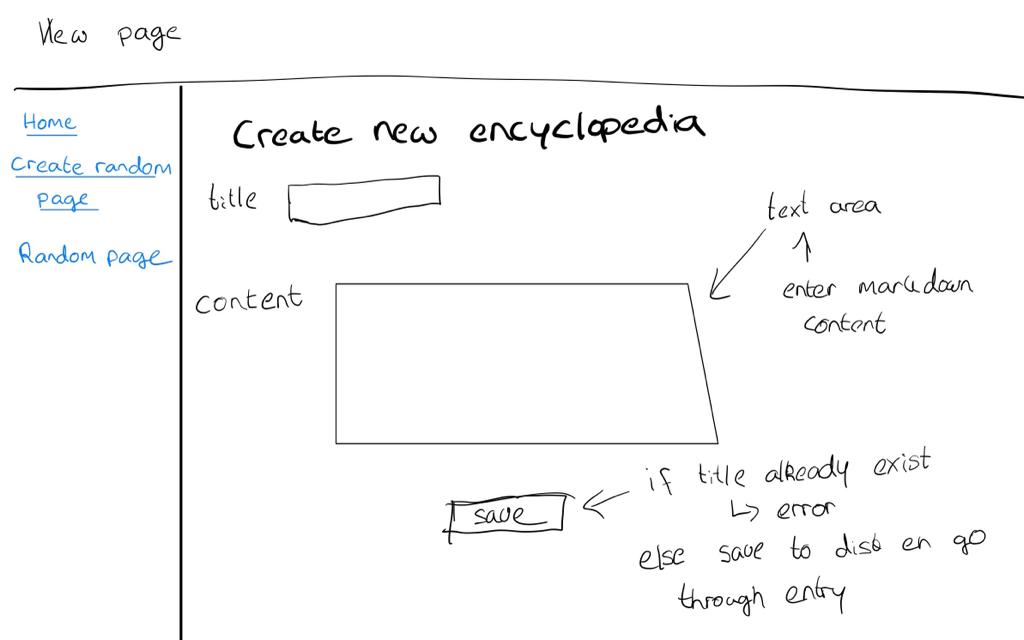 New page
Home
Create random
page
Random page
Create new encyclopedia
title
text area
enter markdown
content
content
save
if title already exist
↳ error
else save to disk en go
through entry